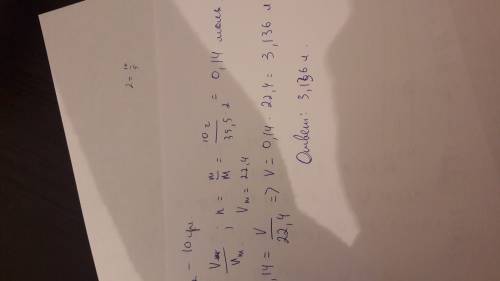 - 10 гр
n = m/M = 10 г / 35,5·2 = 0,14 моль
; Vm = 22,4
,14 = V/22,4 => V = 0,14 · 22,4 = 3,136 л
Ответ: 3,136 л.